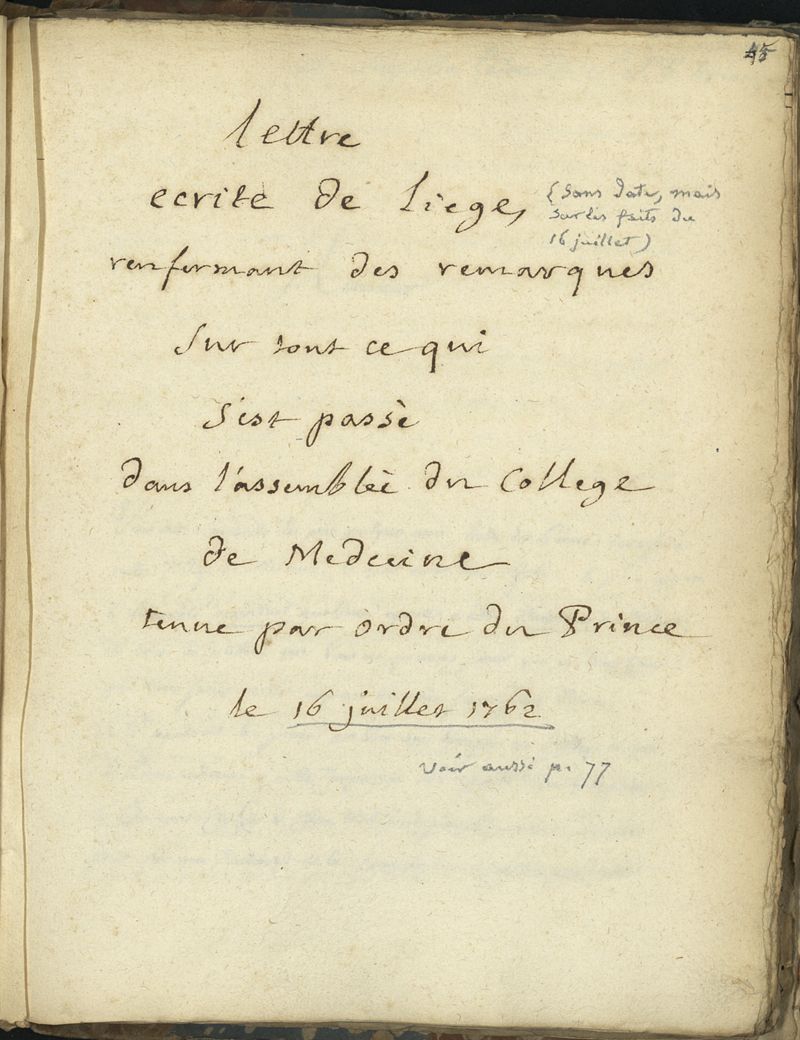 45
lettre
ecrite de Liege,
(Sans date, mais
sur les faits du
16 juillet)
renfermant des remarques
Sur tout ce qui
S'est passè
dans l'assemblèe du College
de Medecine
tenue par ordre du Prince
le 16 juillet 1762
voir aussi p. 77